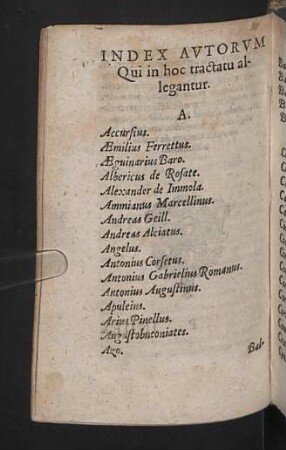 INDEX AVTORVM
Qui in hoc tractatu al-
legantur.
A.
Accursius.
Æmilius Ferrettus.
Æguinarius Baro.
Albericus de Rosate.
Alexander de Immola.
Ammianus Marcellinus.
Andreas Geill.
Andreas Alciatus.
Angelus.
Antonius Corsetus.
Antonius Gabrielius Romanus.
Antonius Augustinus.
Apuleius.
Arius Pinellus.
Augustobuconiates.
Azo.
Bal-